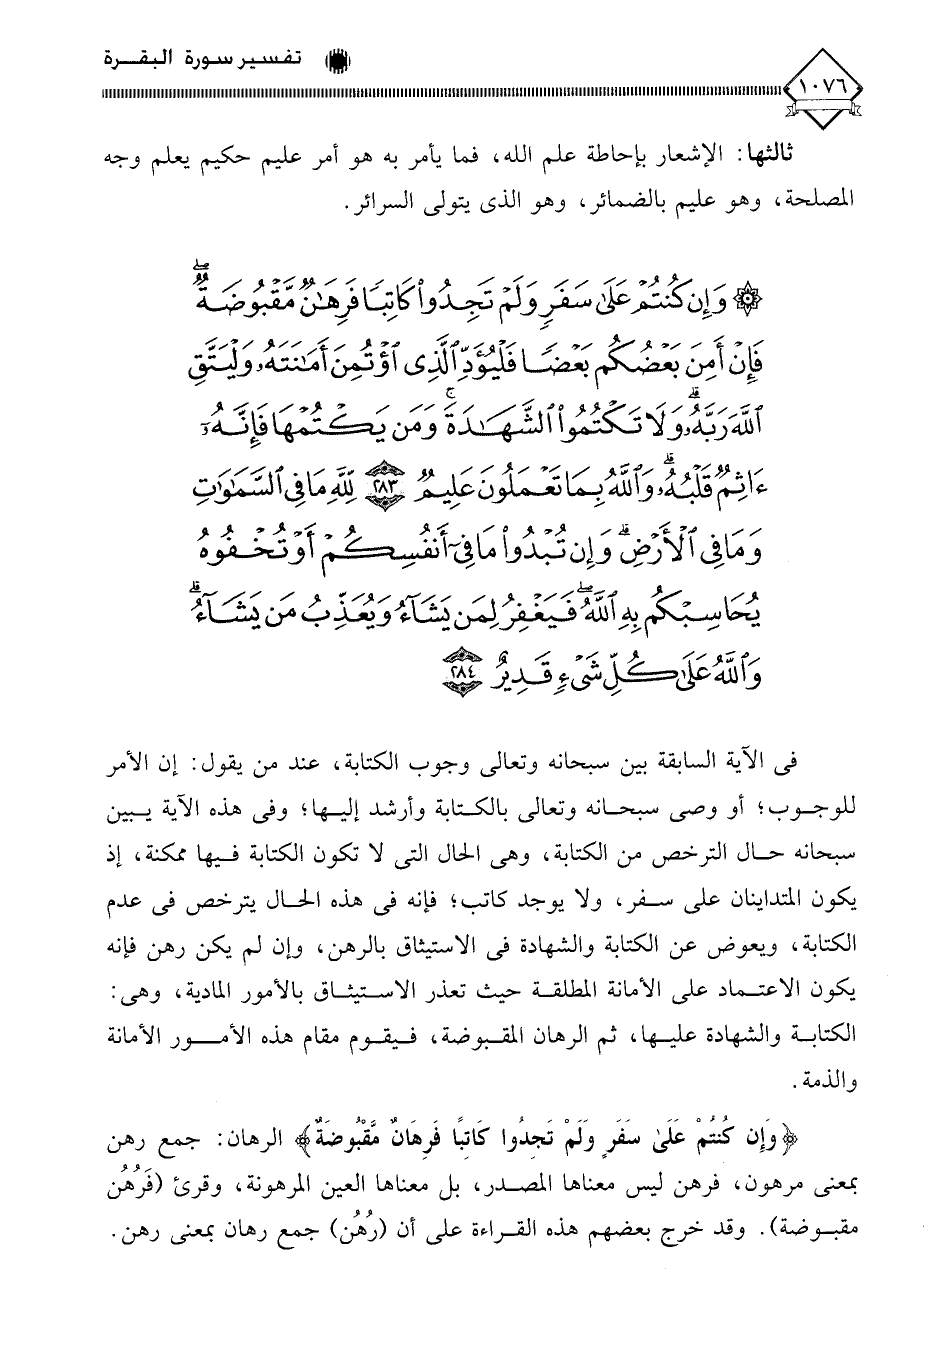 تفسير سورة البقرة
١٠٧٦
ثالثها: الإشعار بإحاطة علم الله، فما يأمر به هو أمر عليم حكيم يعلم وجه
المصلحة، وهو عليم بالضمائر، وهو الذى يتولى السرائر.
۞ وَإِن كُنتُمْ عَلَىٰ سَفَرٍ وَلَمْ تَجِدُوا۟ كَاتِبًا فَرِهَـٰنٌ مَّقْبُوضَةٌ ۖ
فَإِنْ أَمِنَ بَعْضُكُم بَعْضًا فَلْيُؤَدِّ ٱلَّذِى ٱؤْتُمِنَ أَمَـٰنَتَهُۥ وَلْيَتَّقِ
ٱللَّهَ رَبَّهُۥ ۗ وَلَا تَكْتُمُوا۟ ٱلشَّهَـٰدَةَ ۚ وَمَن يَكْتُمْهَا فَإِنَّهُۥٓ
ءَاثِمٌ قَلْبُهُۥ ۗ وَٱللَّهُ بِمَا تَعْمَلُونَ عَلِيمٌ ٢٨٣ لِّلَّهِ مَا فِى ٱلسَّمَـٰوَٰتِ
وَمَا فِى ٱلْأَرْضِ ۗ وَإِن تُبْدُوا۟ مَا فِىٓ أَنفُسِكُمْ أَوْ تُخْفُوهُ
يُحَاسِبْكُم بِهِ ٱللَّهُ ۖ فَيَغْفِرُ لِمَن يَشَآءُ وَيُعَذِّبُ مَن يَشَآءُ ۗ
وَٱللَّهُ عَلَىٰ كُلِّ شَىْءٍ قَدِيرٌ ٢٨٤
فى الآية السابقة بين سبحانه وتعالى وجوب الكتابة، عند من يقول: إن الأمر
للوجوب؛ أو وصى سبحانه وتعالى بالكتابة وأرشد إليها؛ وفى هذه الآية يبين
سبحانه حال الترخص من الكتابة، وهى الحال التى لا تكون الكتابة فيها ممكنة، إذ
يكون المتداينان على سفر، ولا يوجد كاتب؛ فإنه فى هذه الحال يترخص فى عدم
الكتابة، ويعوض عن الكتابة والشهادة فى الاستيثاق بالرهن، وإن لم يكن رهن فإنه
يكون الاعتماد على الأمانة المطلقة حيث تعذر الاستيثاق بالأمور المادية، وهى:
الكتابة والشهادة عليها، ثم الرهان المقبوضة، فيقوم مقام هذه الأمور الأمانة
والذمة.
﴿وَإِن كُنتُمْ عَلَىٰ سَفَرٍ وَلَمْ تَجِدُوا كَاتِبًا فَرِهَانٌ مَّقْبُوضَةٌ﴾ الرهان: جمع رهن
بمعنى مرهون، فرهن ليس معناها المصدر، بل معناها العين المرهونة، وقرئ (فَرُهُن
مقبوضة). وقد خرج بعضهم هذه القراءة على أن (رُهُن) جمع رهان بمعنى رهن.